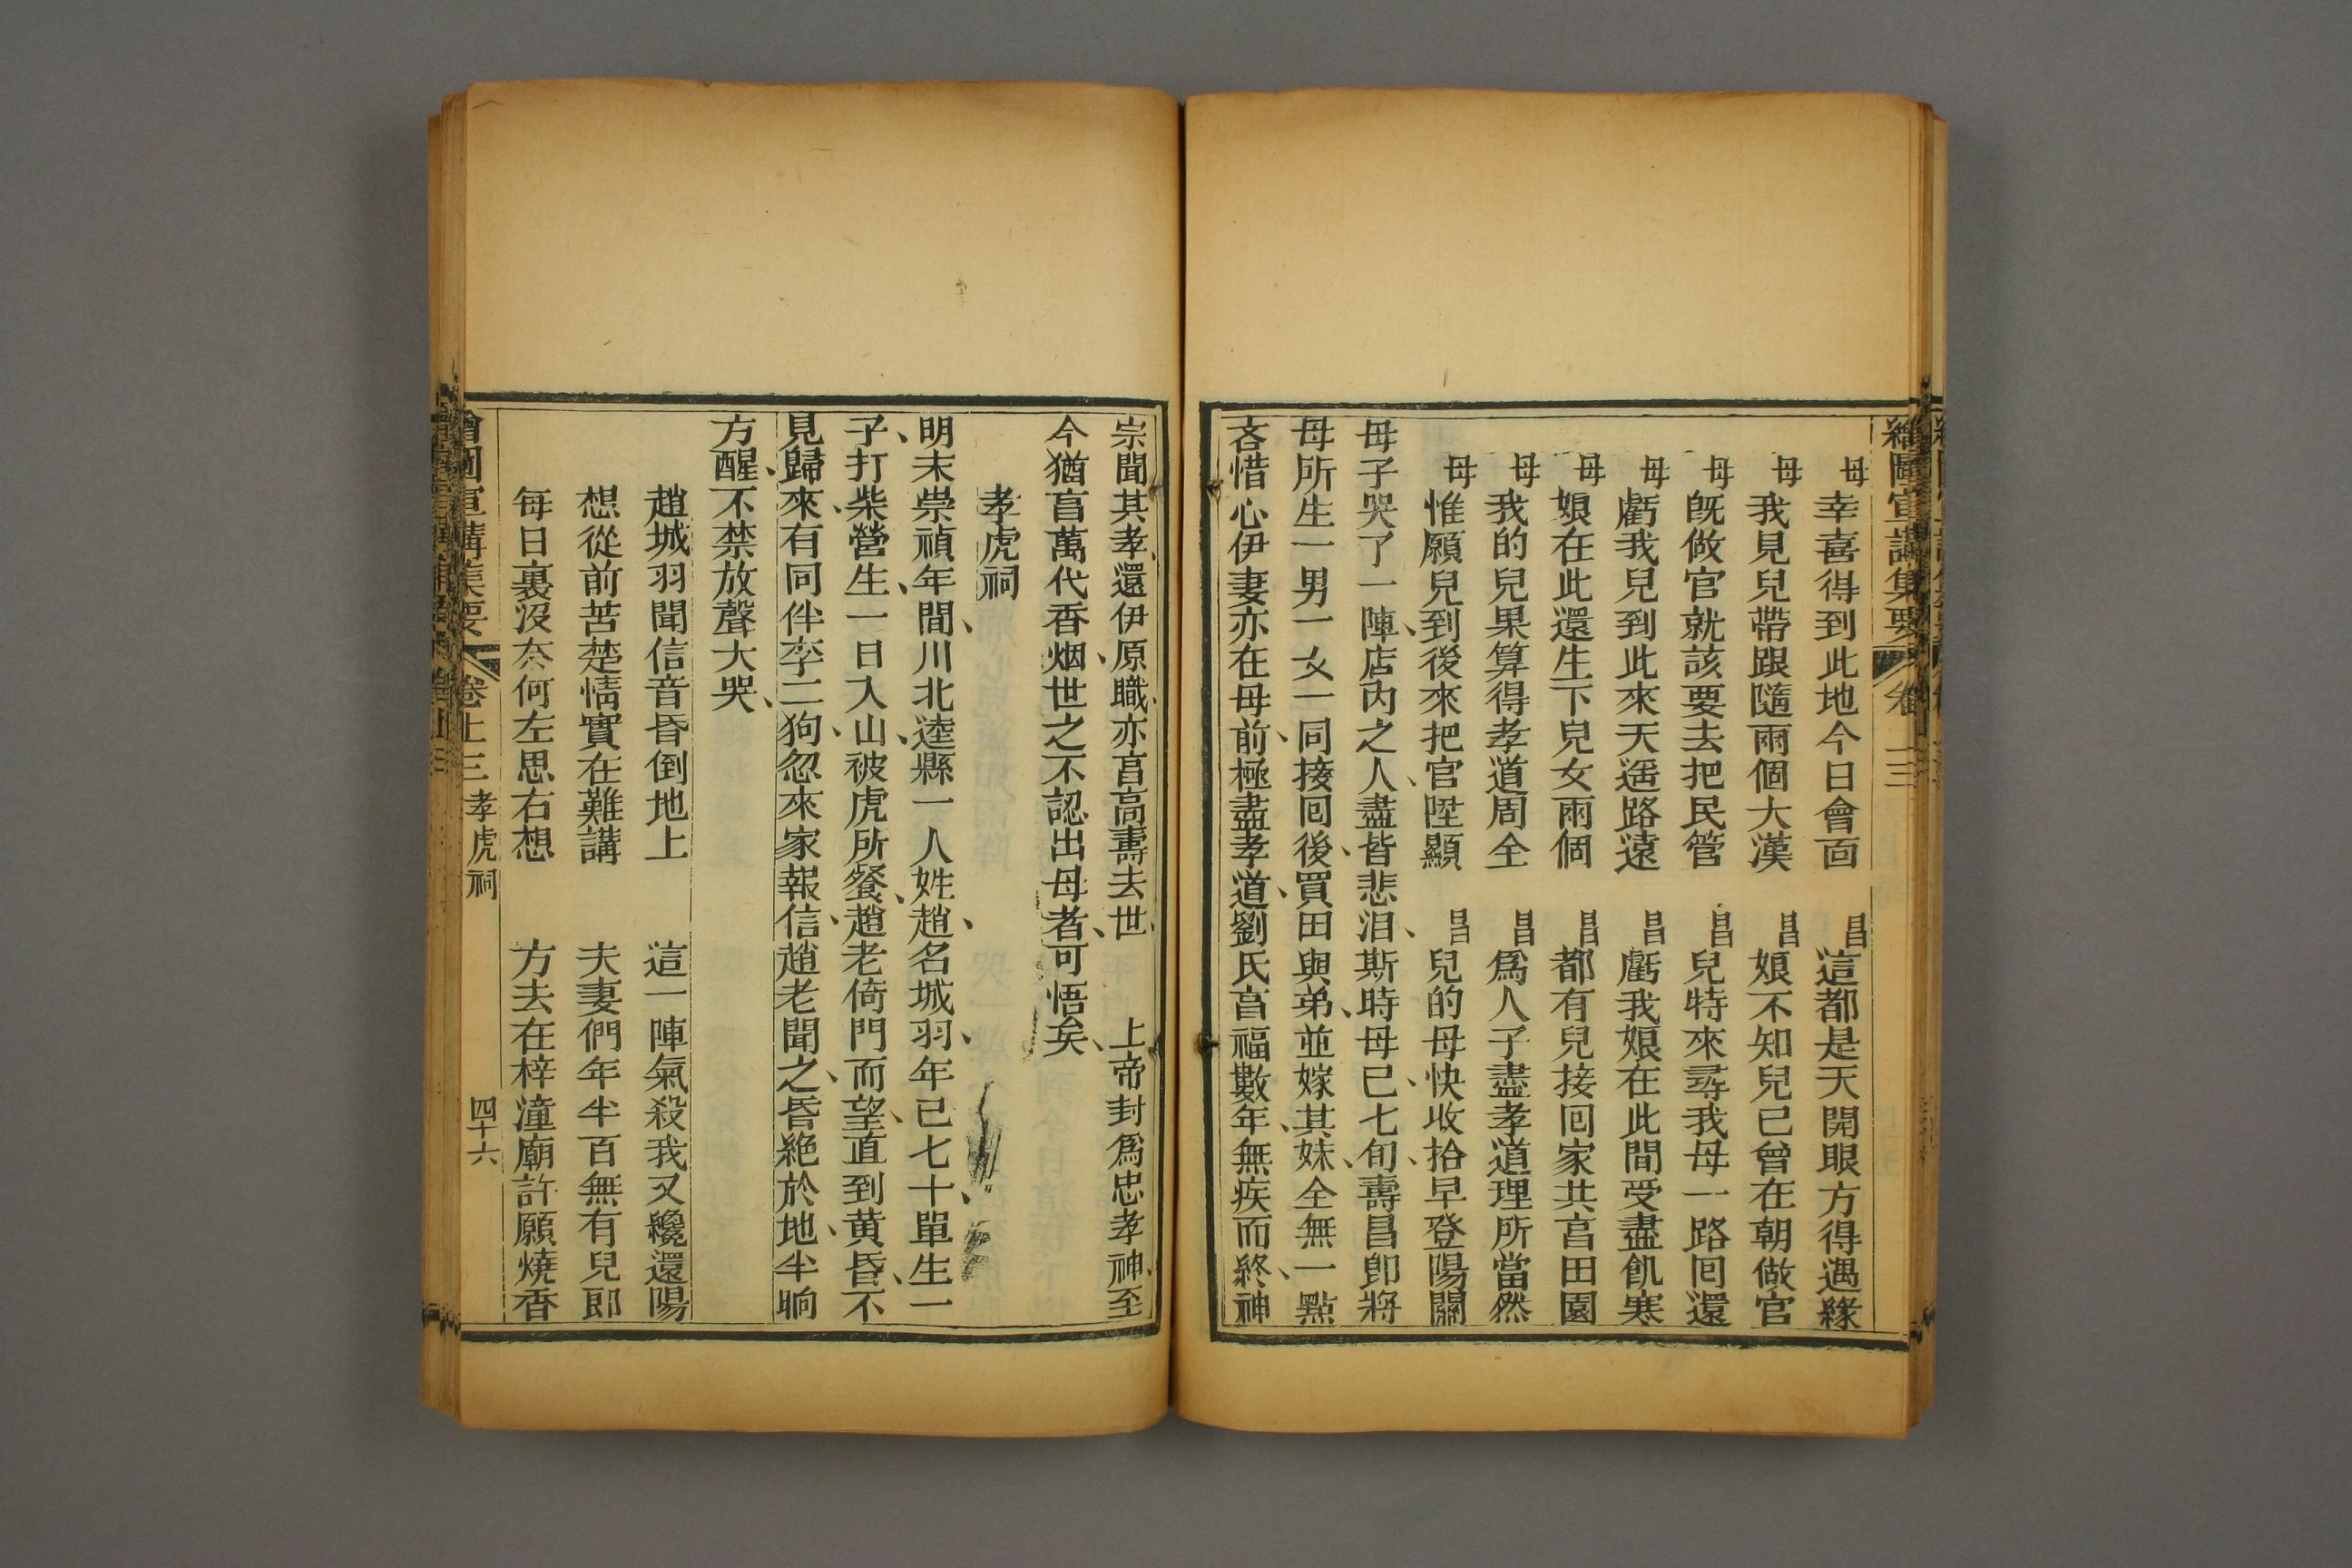 繪圖宣講集要 卷三
母幸喜得到此地今日會面 昌這都是天開眼方得遇緣
母我見兒帶跟隨兩個大漢 昌娘不知兒已曾在朝做官
母既做官就該要去把民管 昌兒特來尋我母一路回還
母虧我兒到此來天遥路遠 昌虧我娘在此間受盡飢寒
母娘在此還生下兒女兩個 昌都有兒接回家共享田園
母我的兒果算得孝道周全 昌爲人子盡孝道理所當然
母惟願兒到後來把官陞顯 昌兒的母快收拾早登陽關
母子哭了一陣、店內之人、盡皆悲泪、斯時母已、七旬、壽昌卽將
母所生一男一女一同接回後、買田與弟、並嫁其妹、全無一點
吝惜心伊妻亦在母前、極盡孝道、劉氏享福數年、無疾而終、神
宗聞其孝、還伊原職、亦享高壽去世、 上帝封爲忠孝神、至
今猶享萬代香烟、世之不認出母者、可悟矣、
孝虎祠
明末崇禎年間、川北逵縣一人姓趙、名城羽、年已七十、單生一
子、打柴營生、一日入山、被虎所餐、趙老倚門而望、直到黄昏、不
見歸來、有同伴李二狗、忽來家報信、趙老聞之、昏絶於地、半晌
方醒、不禁放聲大哭、
趙城羽聞信音昏倒地上 這一陣氣殺我又纔還陽
想從前苦楚情實在難講 夫妻們年半百無有兒郎
每日裏没奈何左思右想 方去在梓潼廟許願燒香
繪圖宣講集要 卷上三 孝虎祠 四十六